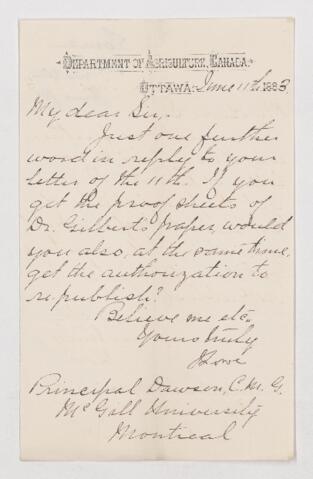 DEPARTMENT OF AGRICULTURE, CANADA.
OTTAWA, June 11th 1883
My dear Sir,
Just one further
word in reply to your
letter of the 11th. If you
get the proof sheets of
Dr. Gilbert's paper, would
you also, at the same time,
get the authorization to
re-publish?
Believe me etc.
Yours truly
J Lowe
Principal Dawson, C. M. G.
McGill University
Montreal